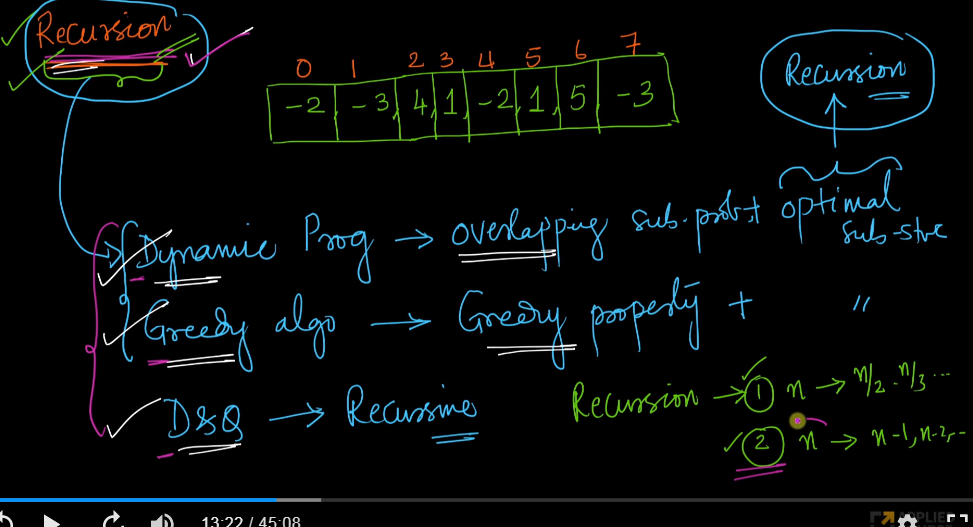 Recursion
0 1 2 3 4 5 6 7
-2 -3 4 1 -2 1 5 -3
Recursion
Dynamic Prog → overlapping sub-prob + optimal
sub-strc
Greedy algo → Greedy property + "
D&Q → Recursive
Recursion → 1 n → n/2, n/3 ...
2 n → n-1, n-2, ..
13:22 / 45:08